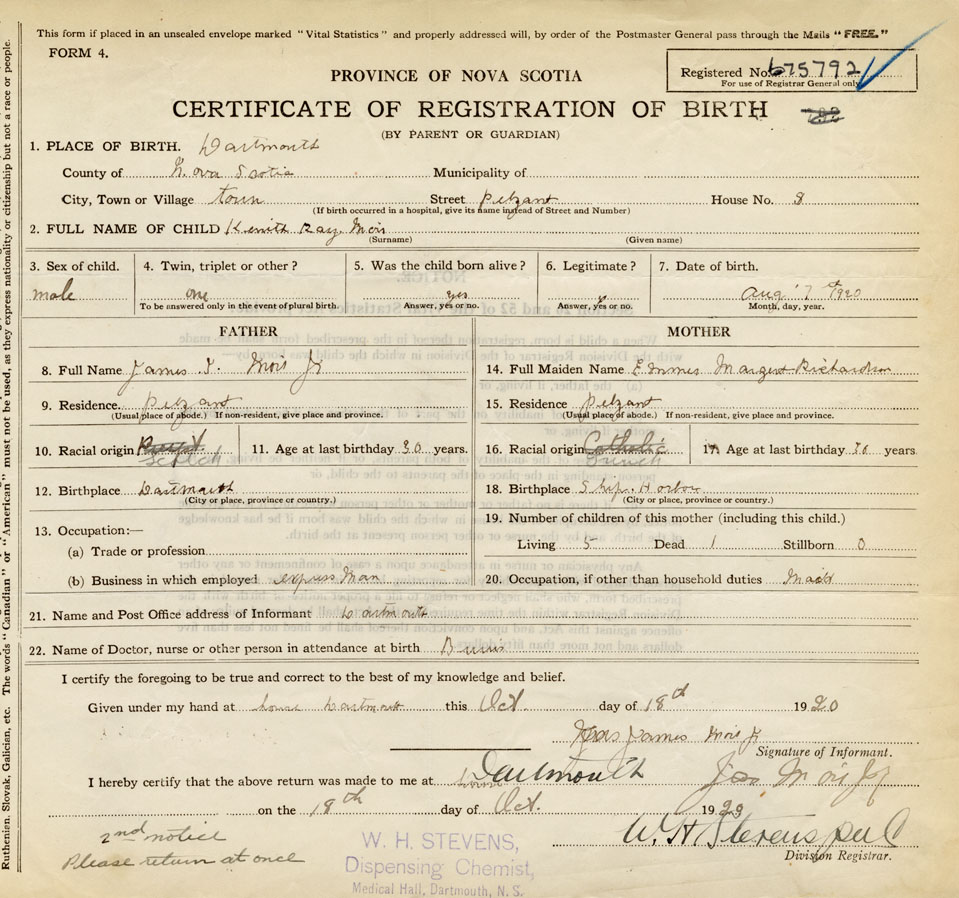 This form if placed in an unsealed envelope marked "Vital Statistics" and properly addressed will, by order of the Postmaster General pass through the Mails "FREE."
FORM 4.
Registered No. 675792
For use of Registrar General only
PROVINCE OF NOVA SCOTIA
CERTIFICATE OF REGISTRATION OF BIRTH
(BY PARENT OR GUARDIAN)
1. PLACE OF BIRTH. Dartmouth
County of Nova Scotia Municipality of
City, Town or Village town Street Pelzant House No. 8
(If birth occurred in a hospital, give its name instead of Street and Number)
2. FULL NAME OF CHILD Kenith Ray Moir
(Surname) (Given name)
3. Sex of child. 4. Twin, triplet or other? 5. Was the child born alive? 6. Legitimate? 7. Date of birth.
male one yes Aug 7th 1920
To be answered only in the event of plural birth. Answer, yes or no. Answer, yes or no. Month, day, year.
FATHER MOTHER
8. Full Name James J. Moir Jr 14. Full Maiden Name Margret Richardson
9. Residence. Pelzant 15. Residence Pelzant
(Usual place of abode.) If non-resident, give place and province. (Usual place of abode.) If non-resident, give place and province.
10. Racial origin Scotch 11. Age at last birthday 30 years. 16. Racial origin Catholic French 17. Age at last birthday years
12. Birthplace Dartmouth 18. Birthplace Ship Harbor
(City or place, province or country.) (City or place, province or country.)
13. Occupation:— 19. Number of children of this mother (including this child.)
(a) Trade or profession Living 5 Dead 1 Stillborn 0
(b) Business in which employed express Man 20. Occupation, if other than household duties
21. Name and Post Office address of Informant Dartmouth
22. Name of Doctor, nurse or other person in attendance at birth
I certify the foregoing to be true and correct to the best of my knowledge and belief.
Given under my hand at house Dartmouth this Oct. day of 18th 1920
James Moir Jr
Signature of Informant.
I hereby certify that the above return was made to me at Dartmouth
on the 18th day of Oct. 19
W. H. Stevens
Division Registrar.
2nd notice
Please return at once
W. H. STEVENS,
Dispensing Chemist,
Medical Hall, Dartmouth, N. S.
Ruthenien, Slovak, Galician, etc. The words "Canadian" or "American" must not be used, as they express nationality or citizenship but not a race or people.